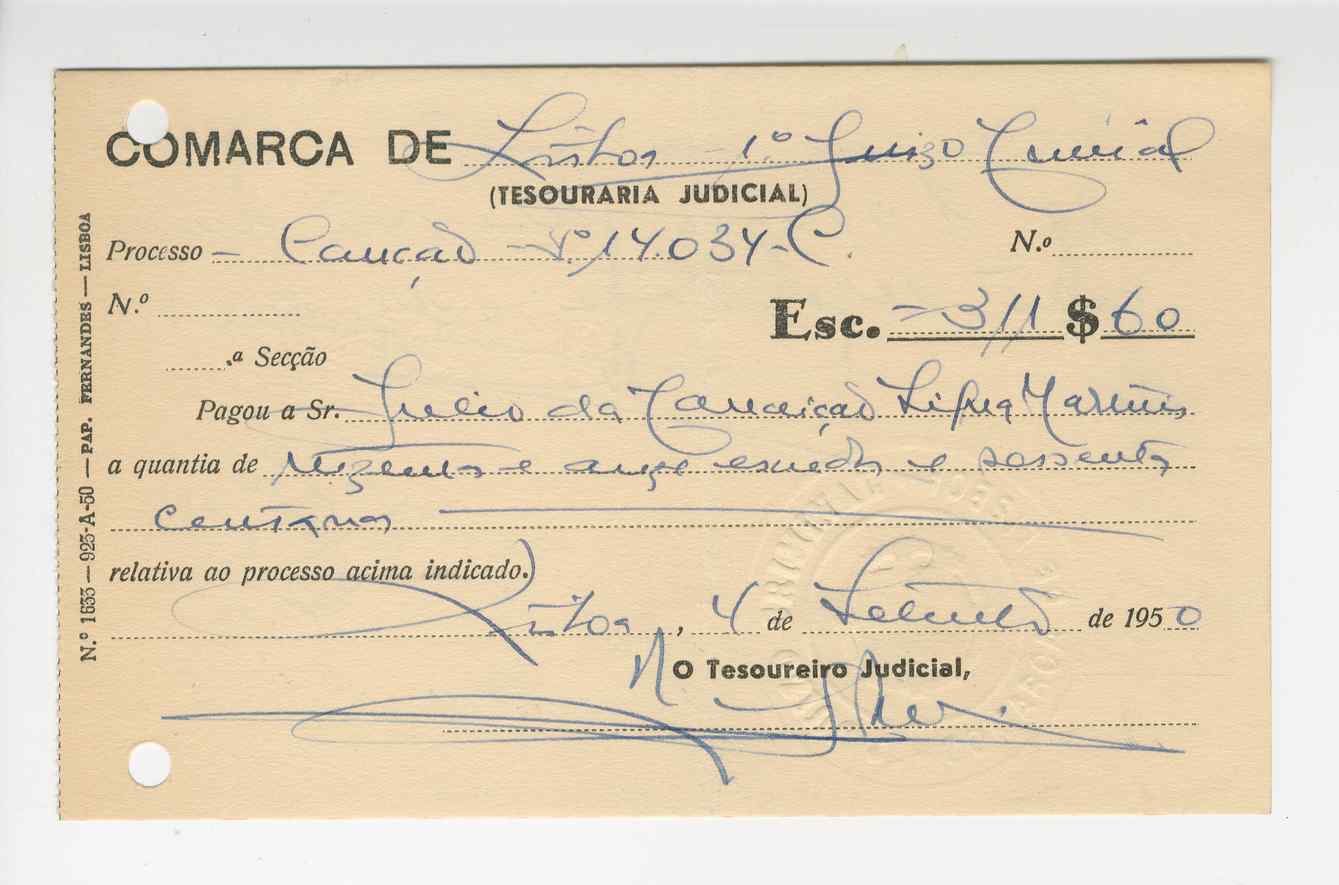 COMARCA DE Lisboa - 1º Juizo Criminal
(TESOURARIA JUDICIAL)
Processo - Caução - Nº 14.034-C. N.º
N.º
Esc. - 311 $ 60
.ª Secção
Pagou a Sr. Julio da Conceição Martins
a quantia de trezentos e onze escudos e sessenta
centavos
relativa ao processo acima indicado.
Lisboa, 4 de Setembro de 1950
O Tesoureiro Judicial,
N.º 1633 — 923-A-50 — PAP. FERNANDES — LISBOA